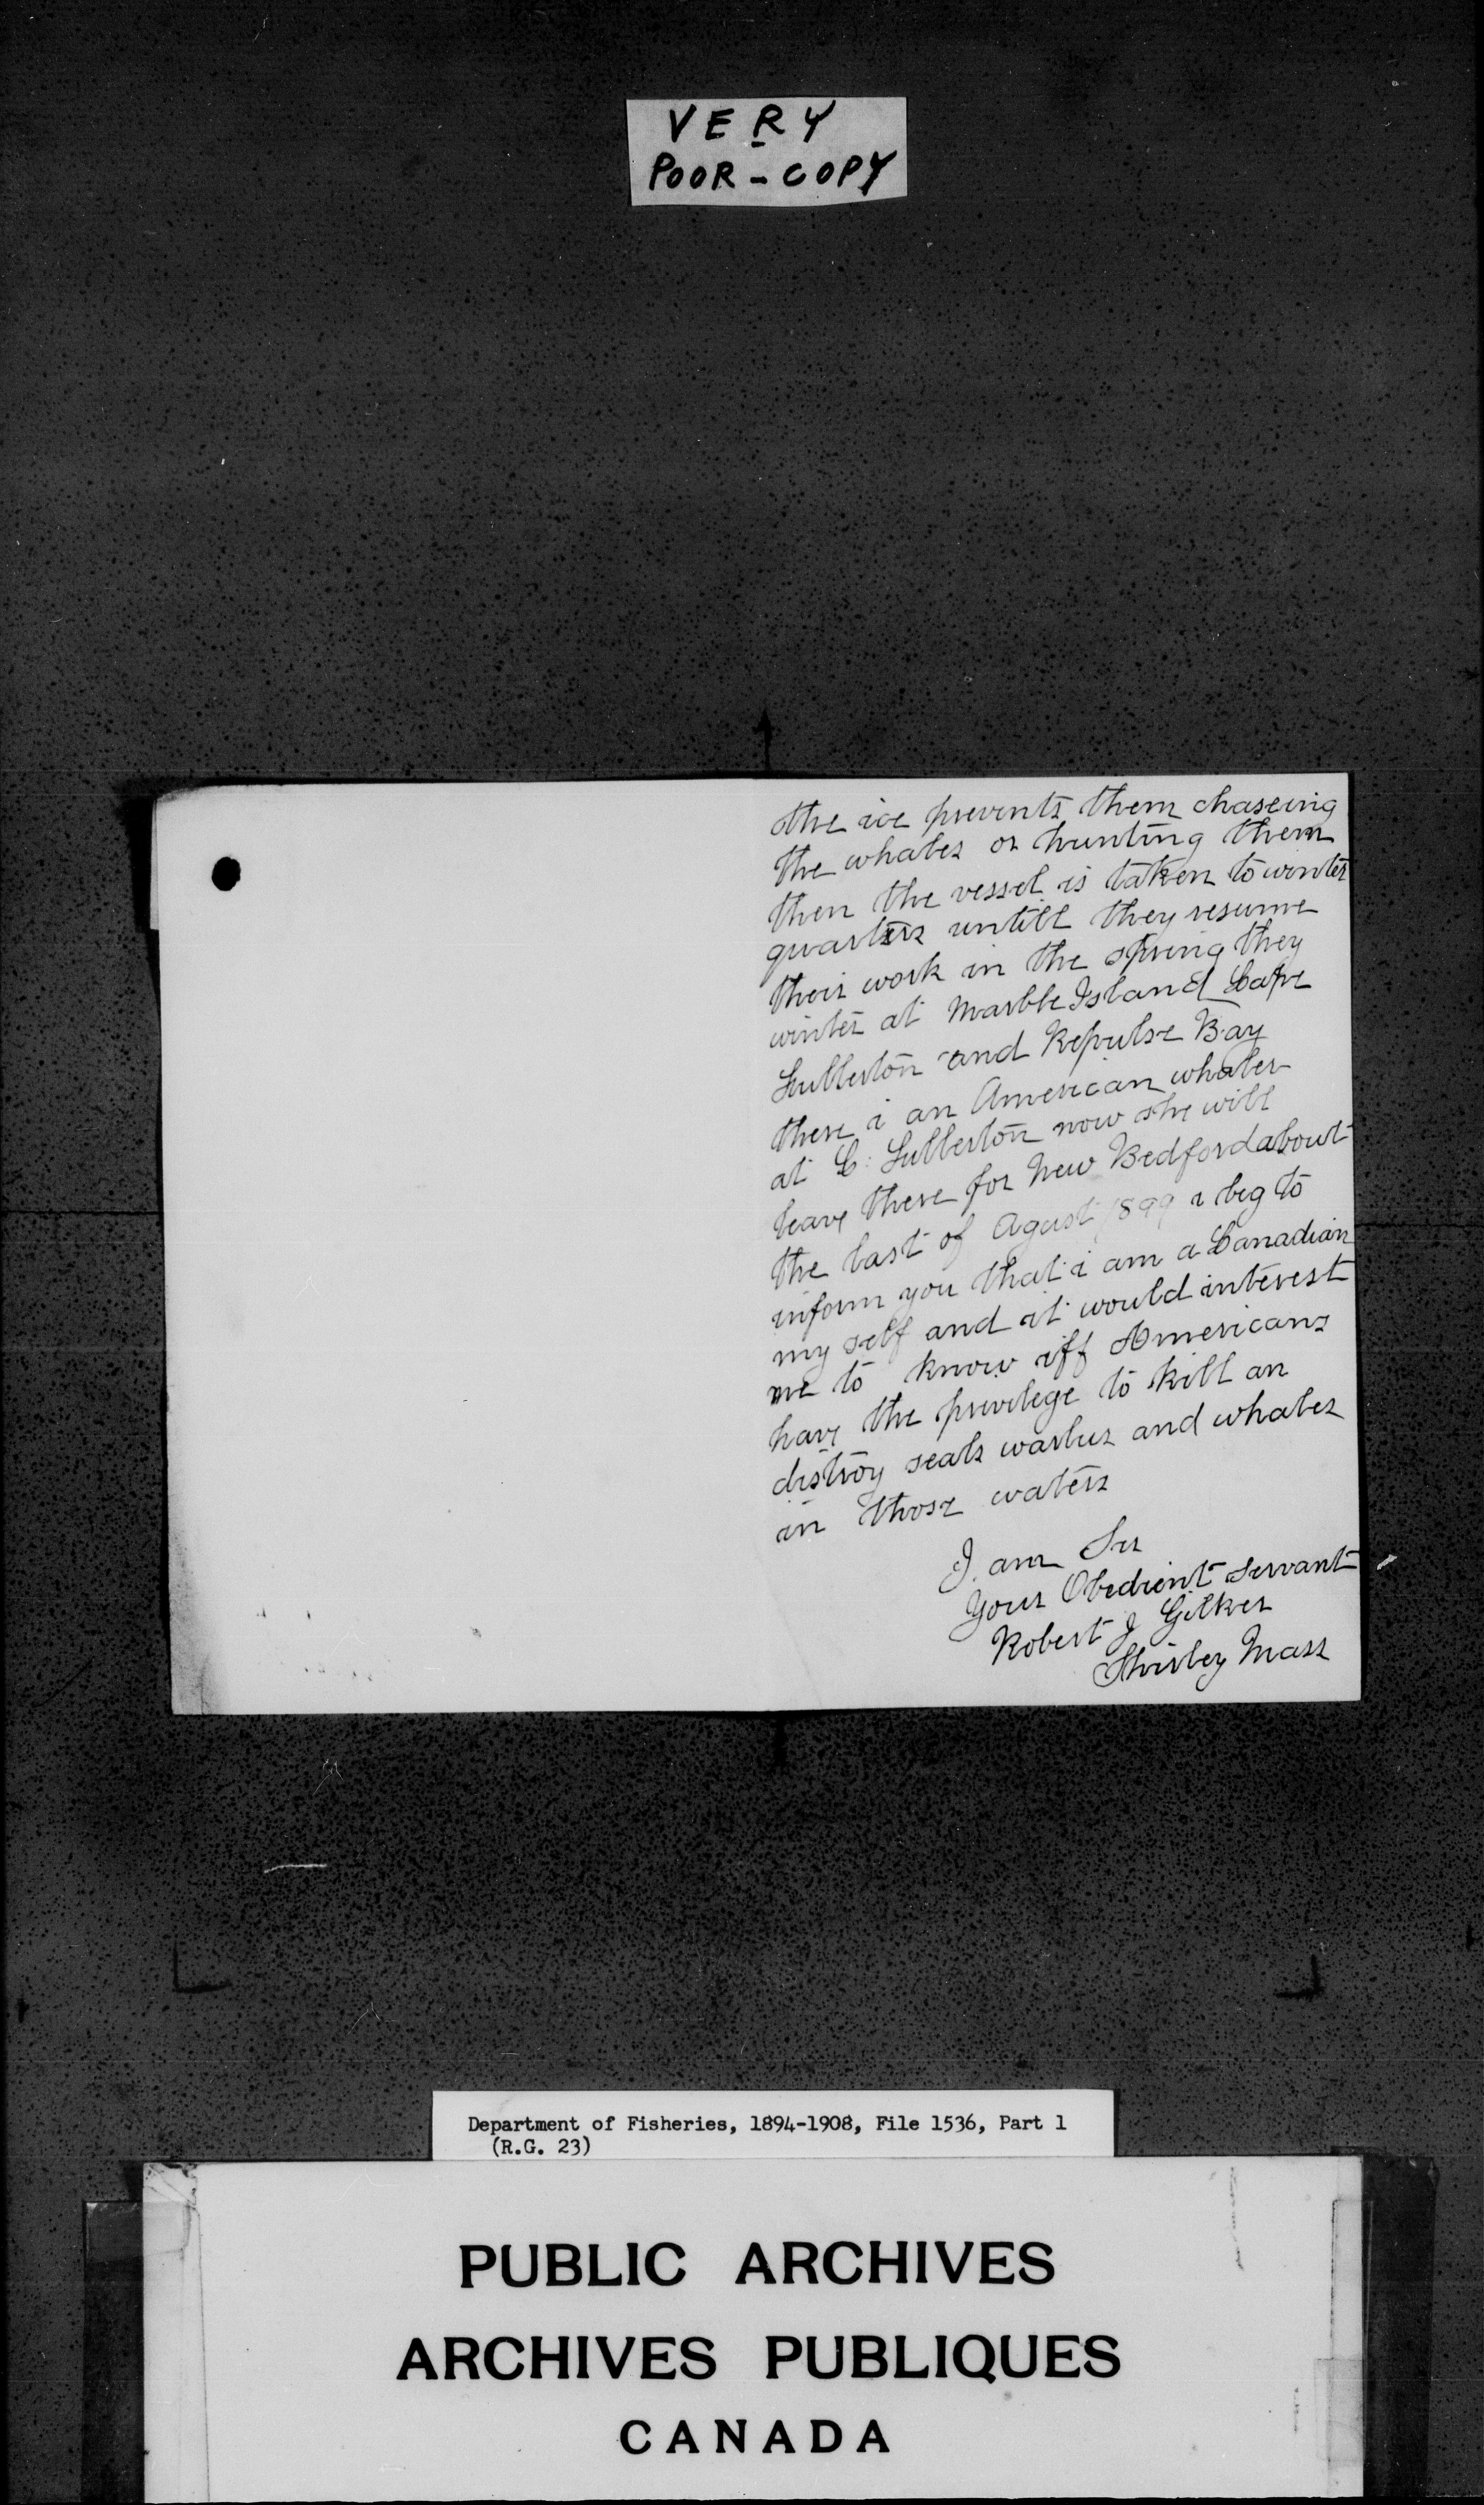 VERY
POOR - COPY
the ice prevents them chaseing
the whales or hunting them
then the vessel is taken to winter
quarters untill they resume
their work in the spring they
winter at Marble Island Cape
Fullerton and Repulse Bay
there i an American whaler
at C. Fullerton now she will
leave there for New Bedford about
the last of Agust 1899 i beg to
inform you that i am a Canadian
my self and it would interest
me to know iff Americans
have the privelege to kill an
distroy seals warlus and whales
in those waters
I am Sir
Your Obedient Servant
Robert J Gilker
Shirley Mass
Department of Fisheries, 1894-1908, File 1536, Part 1
(R.G. 23)
PUBLIC ARCHIVES
ARCHIVES PUBLIQUES
CANADA